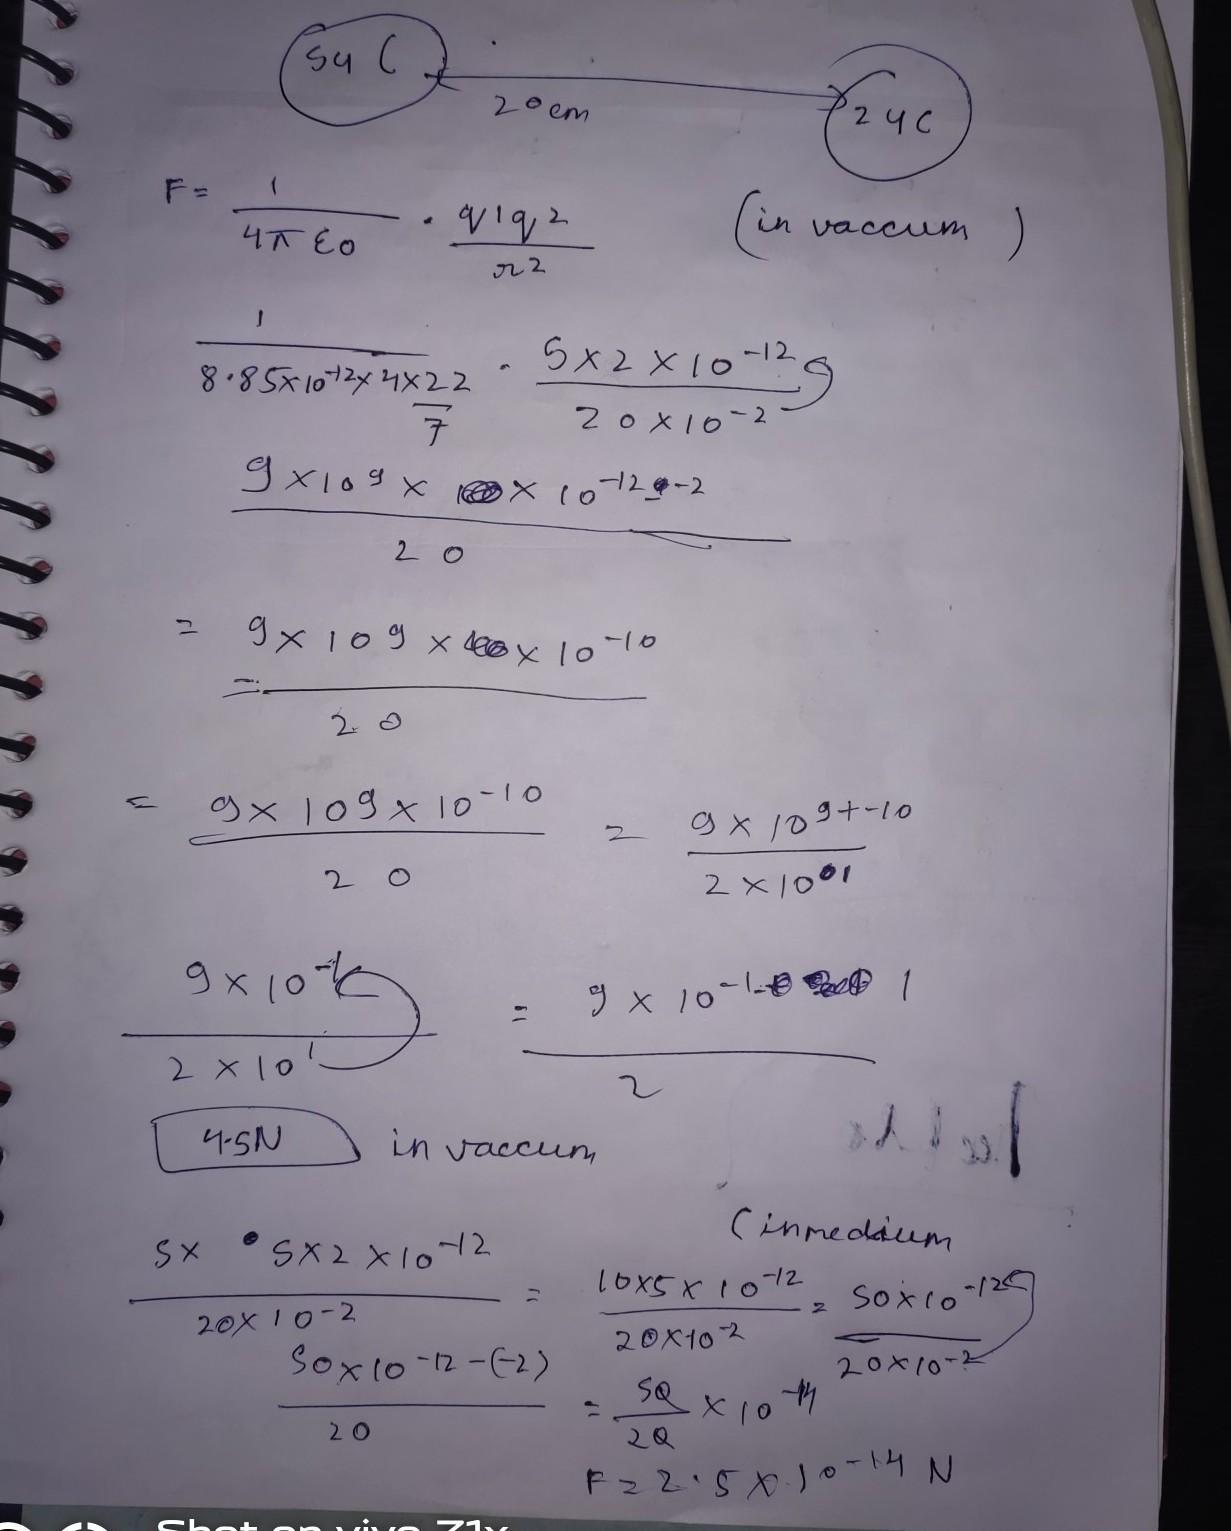 5μC
20cm
2μC
F = 1/4πε0 · q1q2/r2 (in vaccum)
1/8.85×10-12×4×22/7 · 5×2×10-12/20×10-2
9×109 × × 10-12 -2/20
= 9×109 × × 10-10/20
= 9×109×10-10/20 = 9×109+-10/2×101
9×10-1/2×101 = 9×10-1 1/2
4.5N in vaccum
(inmedium
5× 5×2×10-12/20×10-2 = 10×5×10-12/20×10-2 = 50×10-12/20×10-2
50×10-12-(-2)/20 = 50/20 × 10-14
F = 2.5×10-14 N
Shot on vivo Z1x